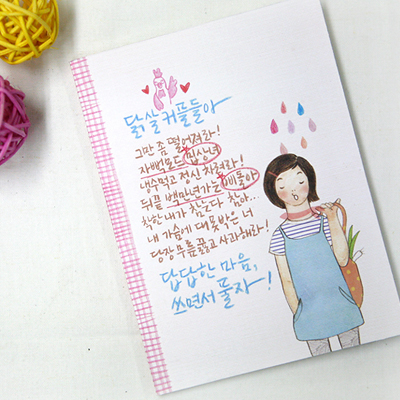 닭살커플들아
그만 좀 떨어져라!
자뻑모드 진상녀
냉수먹고 정신 차려라!
뒤끝 백만년가는 삐돌아
착한 내가 참는다 참아...
내 가슴에 대못박은 너
당장 무릎꿇고 사과해라!
답답한 마음,
쓰면서 풀자!